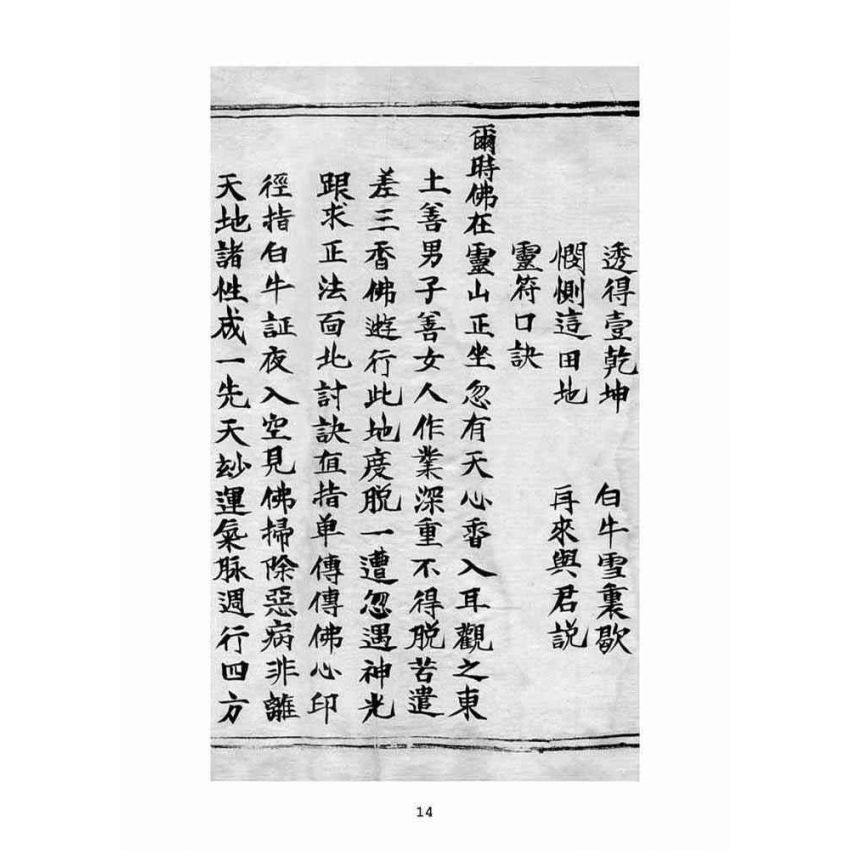 透得壹乾坤　白牛雪裏歇
憫惻這田地　再來與君説
靈符口訣
爾時佛在靈山正坐忽有天心香入耳觀之東
土善男子善女人作業深重不得脱苦遣
差三香佛遊行此地度脱一遭忽遇神光
跟求正法面北討訣直指单傳傳佛心印
徑指白牛証夜入空見佛掃除惡病非離
天地諸性成一先天玅運氣脉週行四方
14